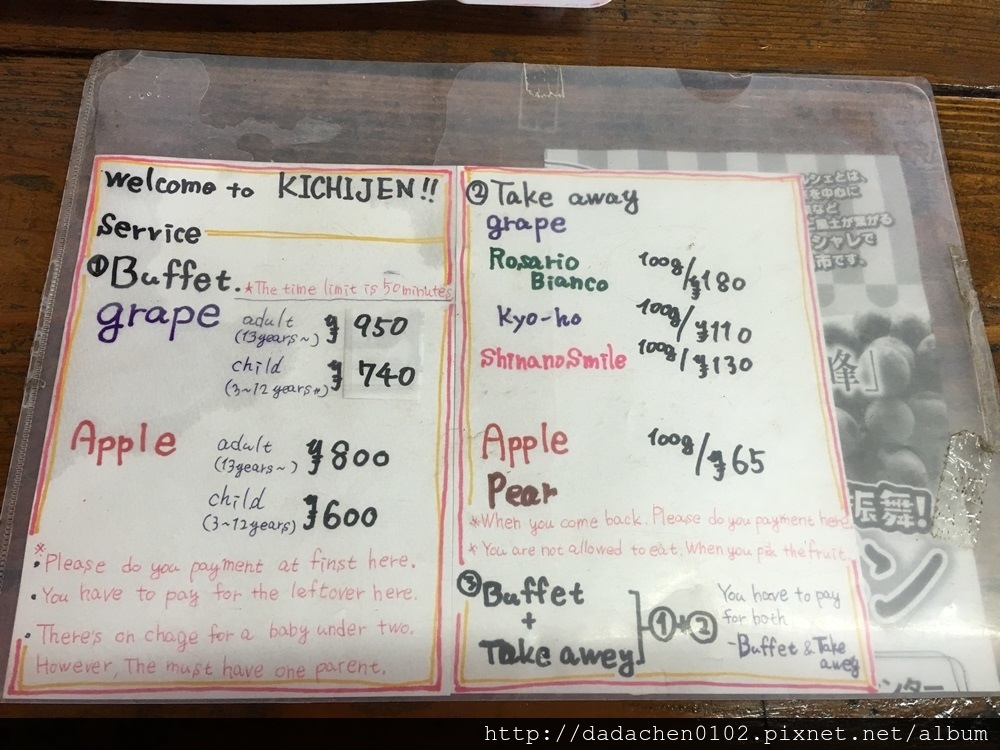 Welcome to KICHIJEN!!
Service
①Buffet.
*The time limit is 50minutes
grape adult ¥ 950
(13years~)
child ¥ 740
(3~12years)
Apple adult ¥800
(13years~)
child ¥600
(3~12years)
*
・Please do you payment at finst here.
・You have to pay for the leftover here.
・There's on chage for a baby under two.
However, The must have one parent.
②Take away
grape
Rosario
Bianco 100g/¥180
Kyo-ho 100g/¥110
Shinano Smile 100g/¥130
Apple 100g/¥65
Pear
*When you come back. Please do you payment here.
* You are not allowed to eat. When you pik the fruit.
③Buffet
+
Take awey
①+②
You have to pay
for both
-Buffet & Take
awey
シェとは、
を中心に
など
と風土が繋がる
シャレで
市です。
峰」
振舞!
ン
ンター
http://dadachen0102.pixnet.net/album